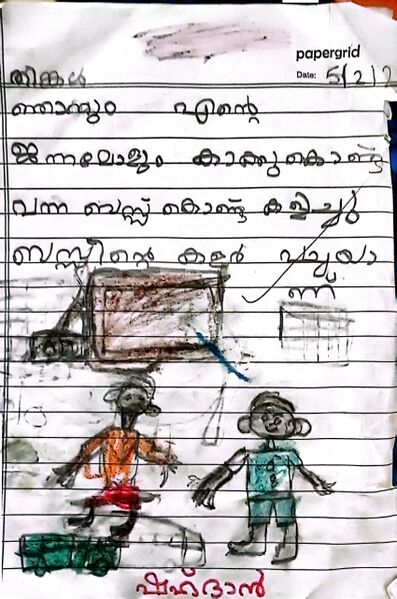 papergrid
Date: 5/2/2
തിങ്കൾ
ഞാനും എന്റെ
കാക്കു കൊണ്ട്
വന്ന ബസ്സ് കൊണ്ട് കളിച്ചു
ബസ്സിന്റെ കളർ പച്ചയാ
ണ്
ഷഹ്ദാൻ